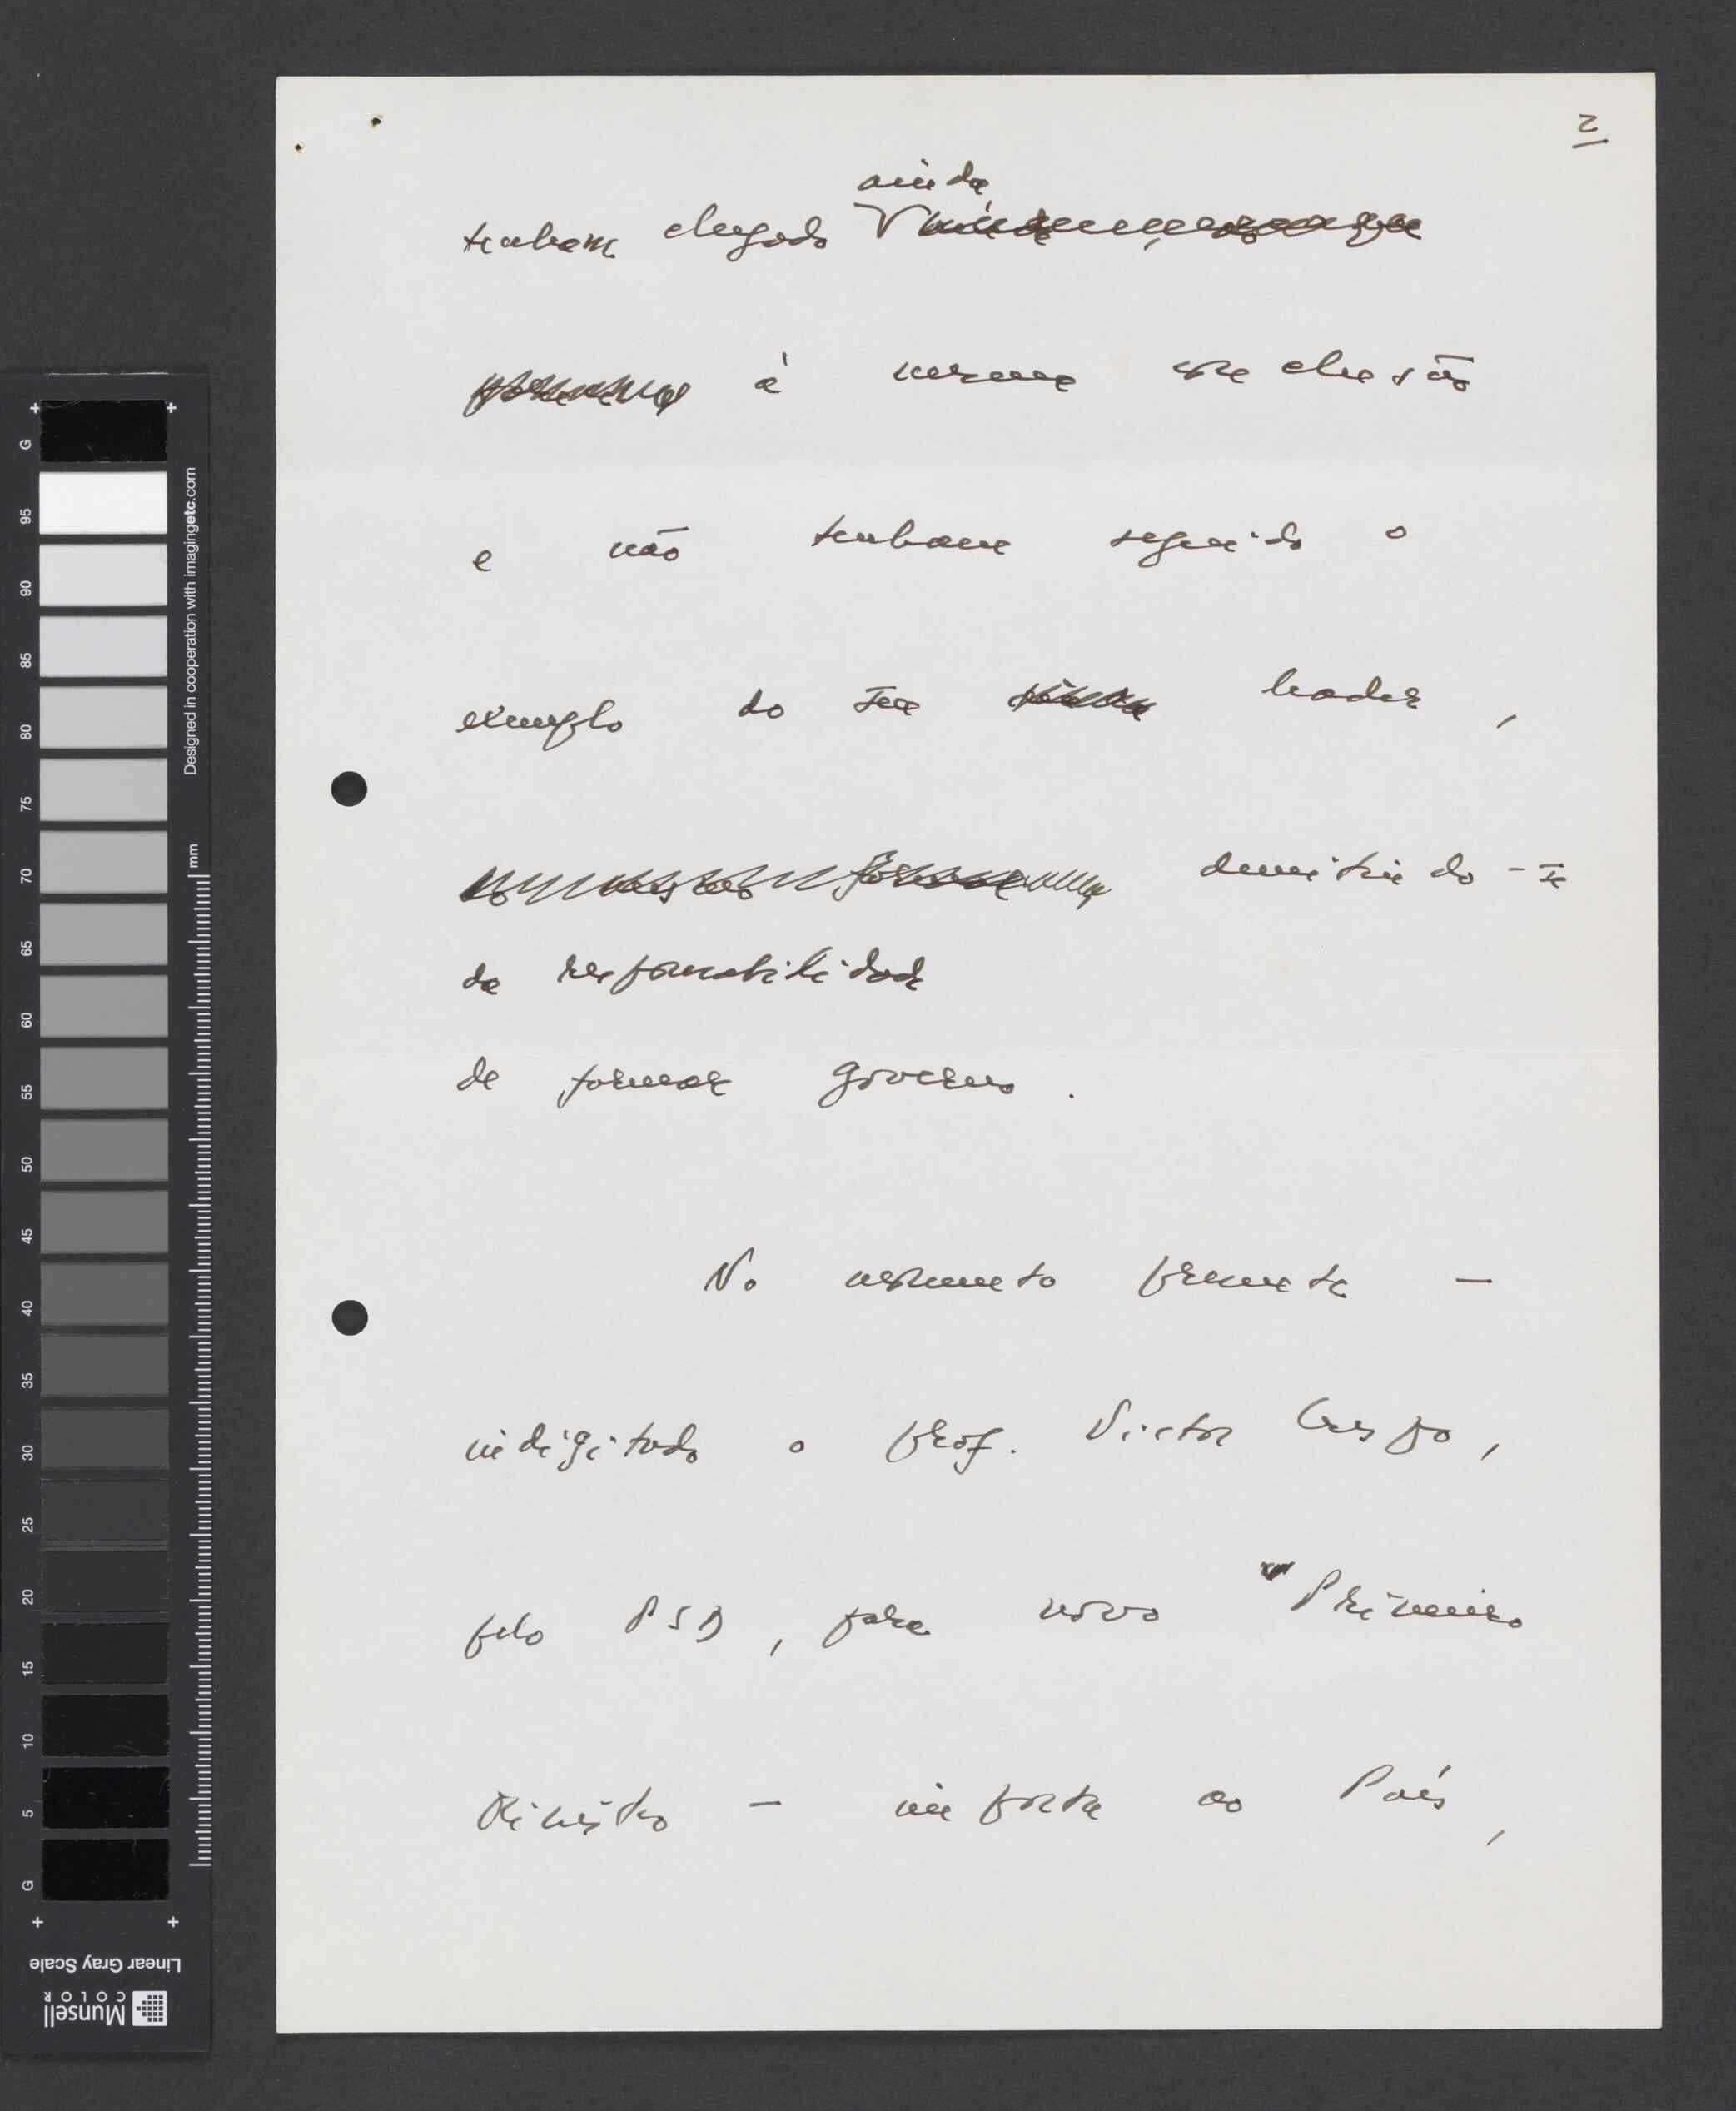 2
ainda
tenham chegado
à mesma conclusão
e não tenham seguido o
exemplo do seu leader,
demitindo-se
da responsabilidade
de formar governo.
No momento presente —
indigitado o prof. Victor Crespo,
pelo PSD, para novo Primeiro
Ministro — importa ao País,
G 95 90 85 80 75 70 65 60 55 50 45 40 35 30 25 20 15 10 5 G
Designed in cooperation with imagingetc.com
mm
Linear Gray Scale
Munsell
COLOR